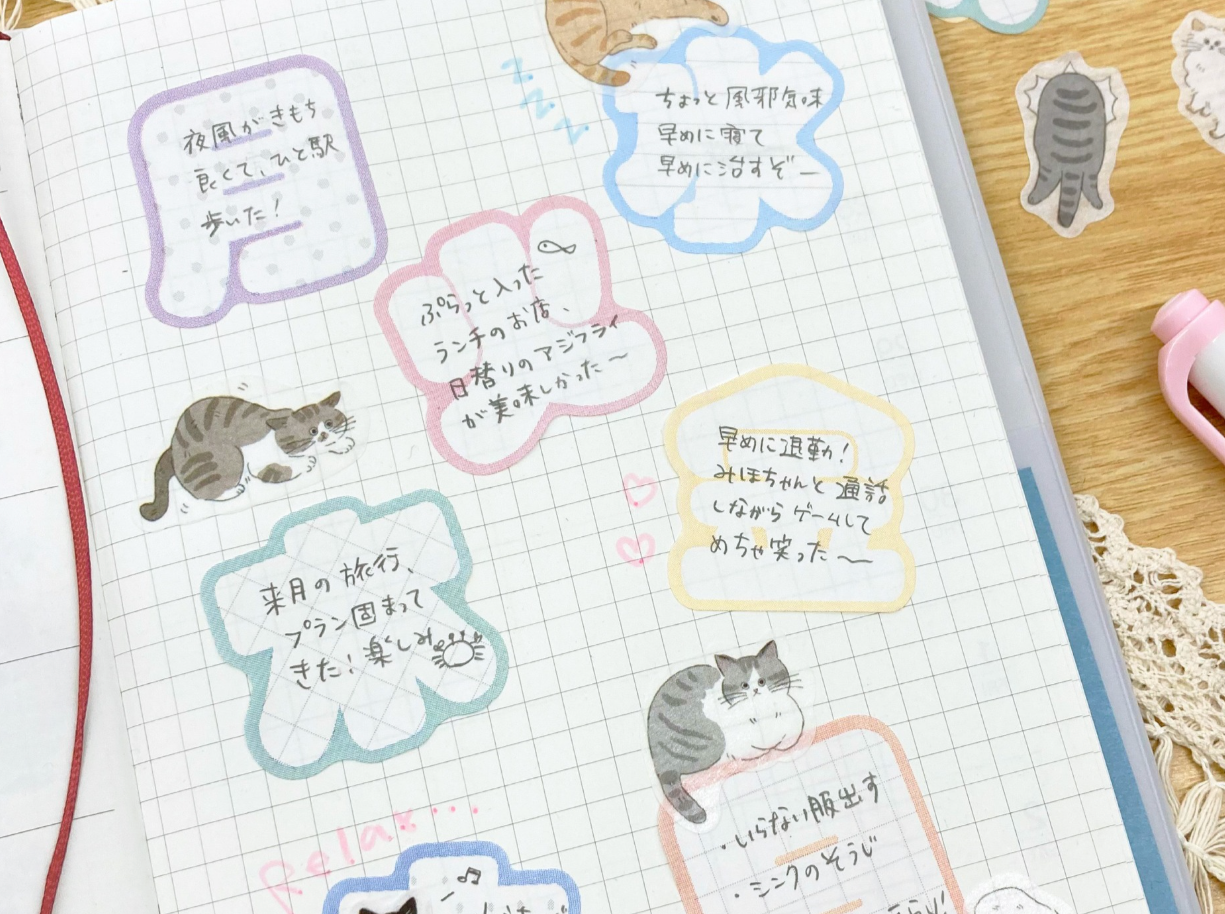 夜風がきもち
良くて、ひと駅
歩いた!
zzz
ちょっと風邪気味
早めに寝て
早めに治すぞー
ぷらっと入った
ランチのお店、
日替りのアジフライ
が美味しかった〜
早めに退勤!
みほちゃんと通話
しながらゲームして
めちゃ笑った〜
来月の旅行、
プラン固まって
きた!楽しみ
Relax...
・いらない服出す
・シンクのそうじ